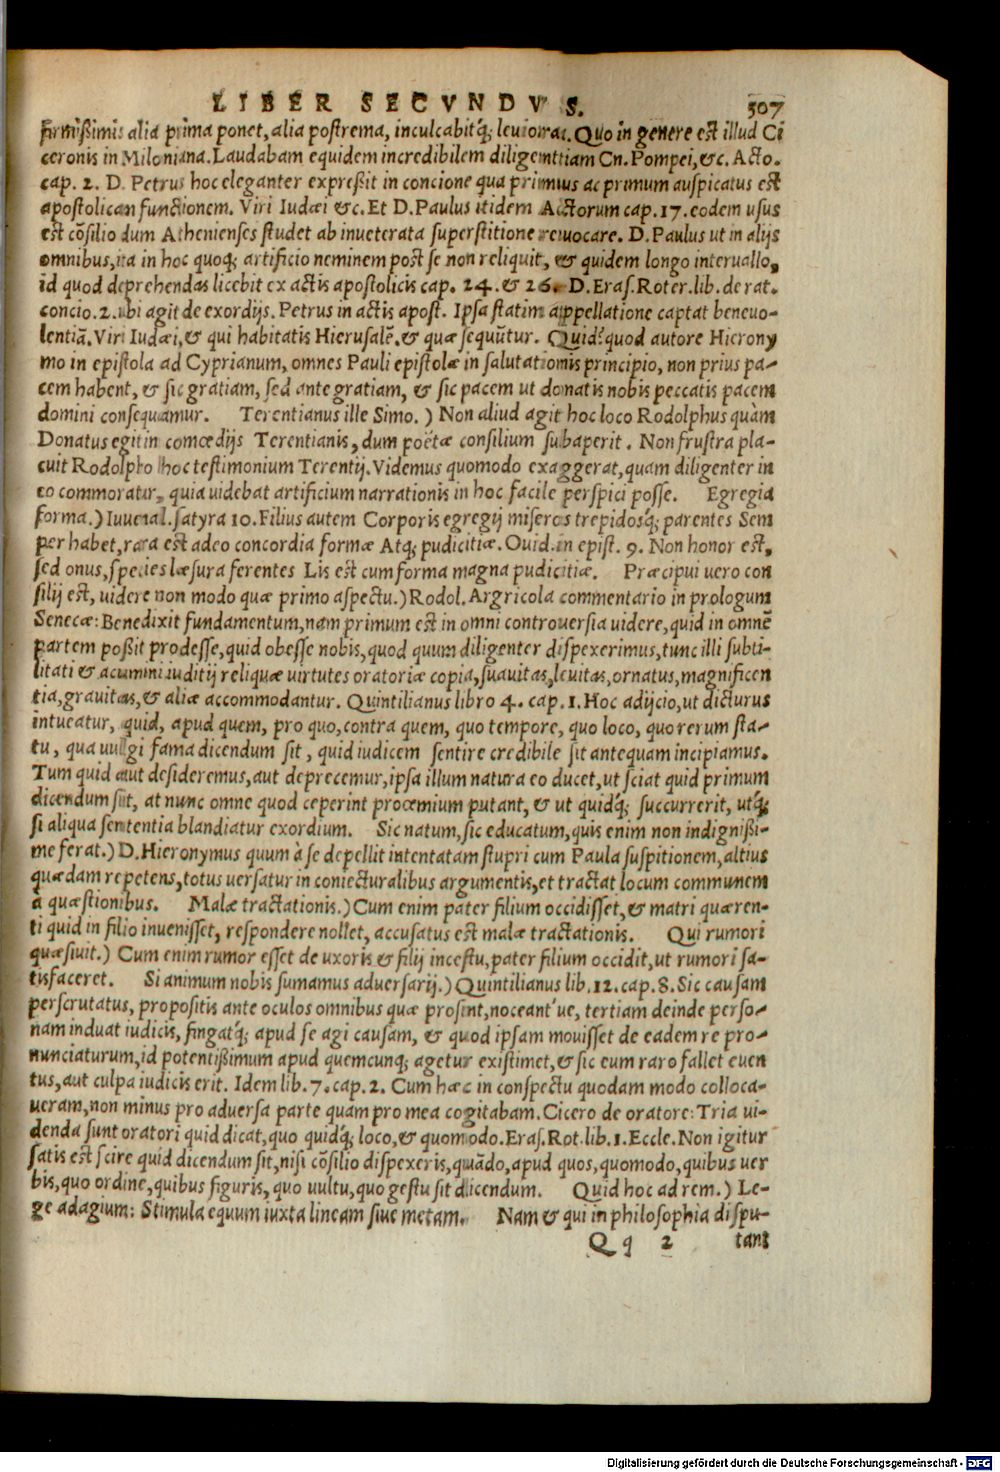 LIBER SECVNDVS. 507
firmißimis alia prima ponet, alia postrema, inculcabitq́; leuiora. Quo in genere est illud Ci
ceronis in Miloniana. Laudabam equidem incredibilem diligentiam Cn. Pompei, &c. Acto.
cap. 2. D. Petrus hoc eleganter expreßit in concione qua primus ac primum auspicatus est
apostolican functionem. Viri Iudæi &c. Et D. Paulus itidem Actorum cap. 17. eodem usus
est cõsilio dum Athenienses studet ab inueterata superstitione reuocare. D. Paulus ut in alijs
omnibus, ita in hoc quoq; artificio neminem post se non reliquit, & quidem longo interuallo,
id quod deprehendas licebit ex actis apostolicis cap. 24. & 26. D. Eras. Roter. lib. de rat.
concio. 2. ubi agit de exordijs. Petrus in actis apost. Ipsa statim appellatione captat beneuo-
lentiã. Viri Iudæi, & qui habitatis Hierusalẽ. & quæ sequũtur. Quid? quod autore Hierony
mo in epistola ad Cyprianum, omnes Pauli epistolæ in salutationis principio, non prius pa-
cem habent, & sic gratiam, sed ante gratiam, & sic pacem ut donatis nobis peccatis pacem
domini consequamur. Terentianus ille Simo.) Non aliud agit hoc loco Rodolphus quàm
Donatus egit in comœdijs Terentianis, dum poëtæ consilium subaperit. Non frustra pla-
cuit Rodolpho hoc testimonium Terentij. Videmus quomodo exaggerat, quam diligenter in
eo commoratur, quia uidebat artificium narrationis in hoc facile perspici posse. Egregia
forma.) Iuuenal. satyra 10. Filius autem Corporis egregij miseros trepidosq́; parentes Sem
per habet, rara est adeo concordia formæ Atq; pudicitiæ. Ouid. in epist. 9. Non honor est,
sed onus, species læsura ferentes Lis est cum forma magna pudicitiæ. Præcipui uero con
silij est, uidere non modo quæ primo aspectu.) Rodol. Argricola commentario in prologum
Senecæ: Benedixit fundamentum, nam primum est in omni controuersia uidere, quid in omnẽ
partem poßit prodesse, quid obesse nobis, quod quum diligenter dispexerimus, tunc illi subti-
litati & acumini iuditij reliquæ uirtutes oratoriæ copia, suauitas, leuitas, ornatus, magnificen
tia, grauitas, & aliæ accommodantur. Quintilianus libro 4. cap. 1. Hoc adijcio, ut dicturus
intueatur, quid, apud quem, pro quo, contra quem, quo tempore, quo loco, quo rerum sta-
tu, qua uulgi fama dicendum sit, quid iudicem sentire credibile sit antequam incipiamus.
Tum quid aut desideremus, aut deprecemur, ipsa illum natura eo ducet, ut sciat quid primum
dicendum sit, at nunc omne quod ceperint proœmium putant, & ut quidq́; succurrerit, utq́;
si aliqua sententia blandiatur exordium. Sic natum, sic educatum, quis enim non indignißi-
me ferat.) D. Hieronymus quum à se depellit intentatam stupri cum Paula suspitionem, altius
quædam repetens, totus uersatur in coniecturalibus argumentis, et tractat locum communem
à quæstionibus. Malæ tractationis.) Cum enim pater filium occidisset, & matri quæren-
ti quid in filio inuenisset, respondere nollet, accusatus est malæ tractationis. Qui rumori
quæsiuit.) Cum enim rumor esset de uxoris & filij incestu, pater filium occidit, ut rumori sa-
tisfaceret. Si animum nobis sumamus aduersarij.) Quintilianus lib. 12. cap. 8. Sic causam
perscrutatus, propositis ante oculos omnibus quæ prosint, noceant ue, tertiam deinde perso-
nam induat iudicis, fingatq́; apud se agi causam, & quod ipsam mouisset de eadem re pro-
nunciaturum, id potentißimum apud quemcunq; agetur existimet, & sic eum raro fallet euen
tus, aut culpa iudicis erit. Idem lib. 7. cap. 2. Cum hæc in conspectu quodam modo colloca-
ueram, non minus pro aduersa parte quam pro mea cogitabam. Cicero de oratore: Tria ui-
denda sunt oratori quid dicat, quo quidq́; loco, & quomodo. Eras. Rot. lib. 1. Eccle. Non igitur
satis est scire quid dicendum sit, nisi cõsilio dispexeris, quãdo, apud quos, quomodo, quibus uer
bis, quo ordine, quibus figuris, quo uultu, quo gestu sit dicendum. Quid hoc ad rem.) Le-
ge adagium: Stimula equum iuxta lineam siue metam. Nam & qui in philosophia dispu-
Qq 2 tant
Digitalisierung gefördert durch die Deutsche Forschungsgemeinschaft - DFG